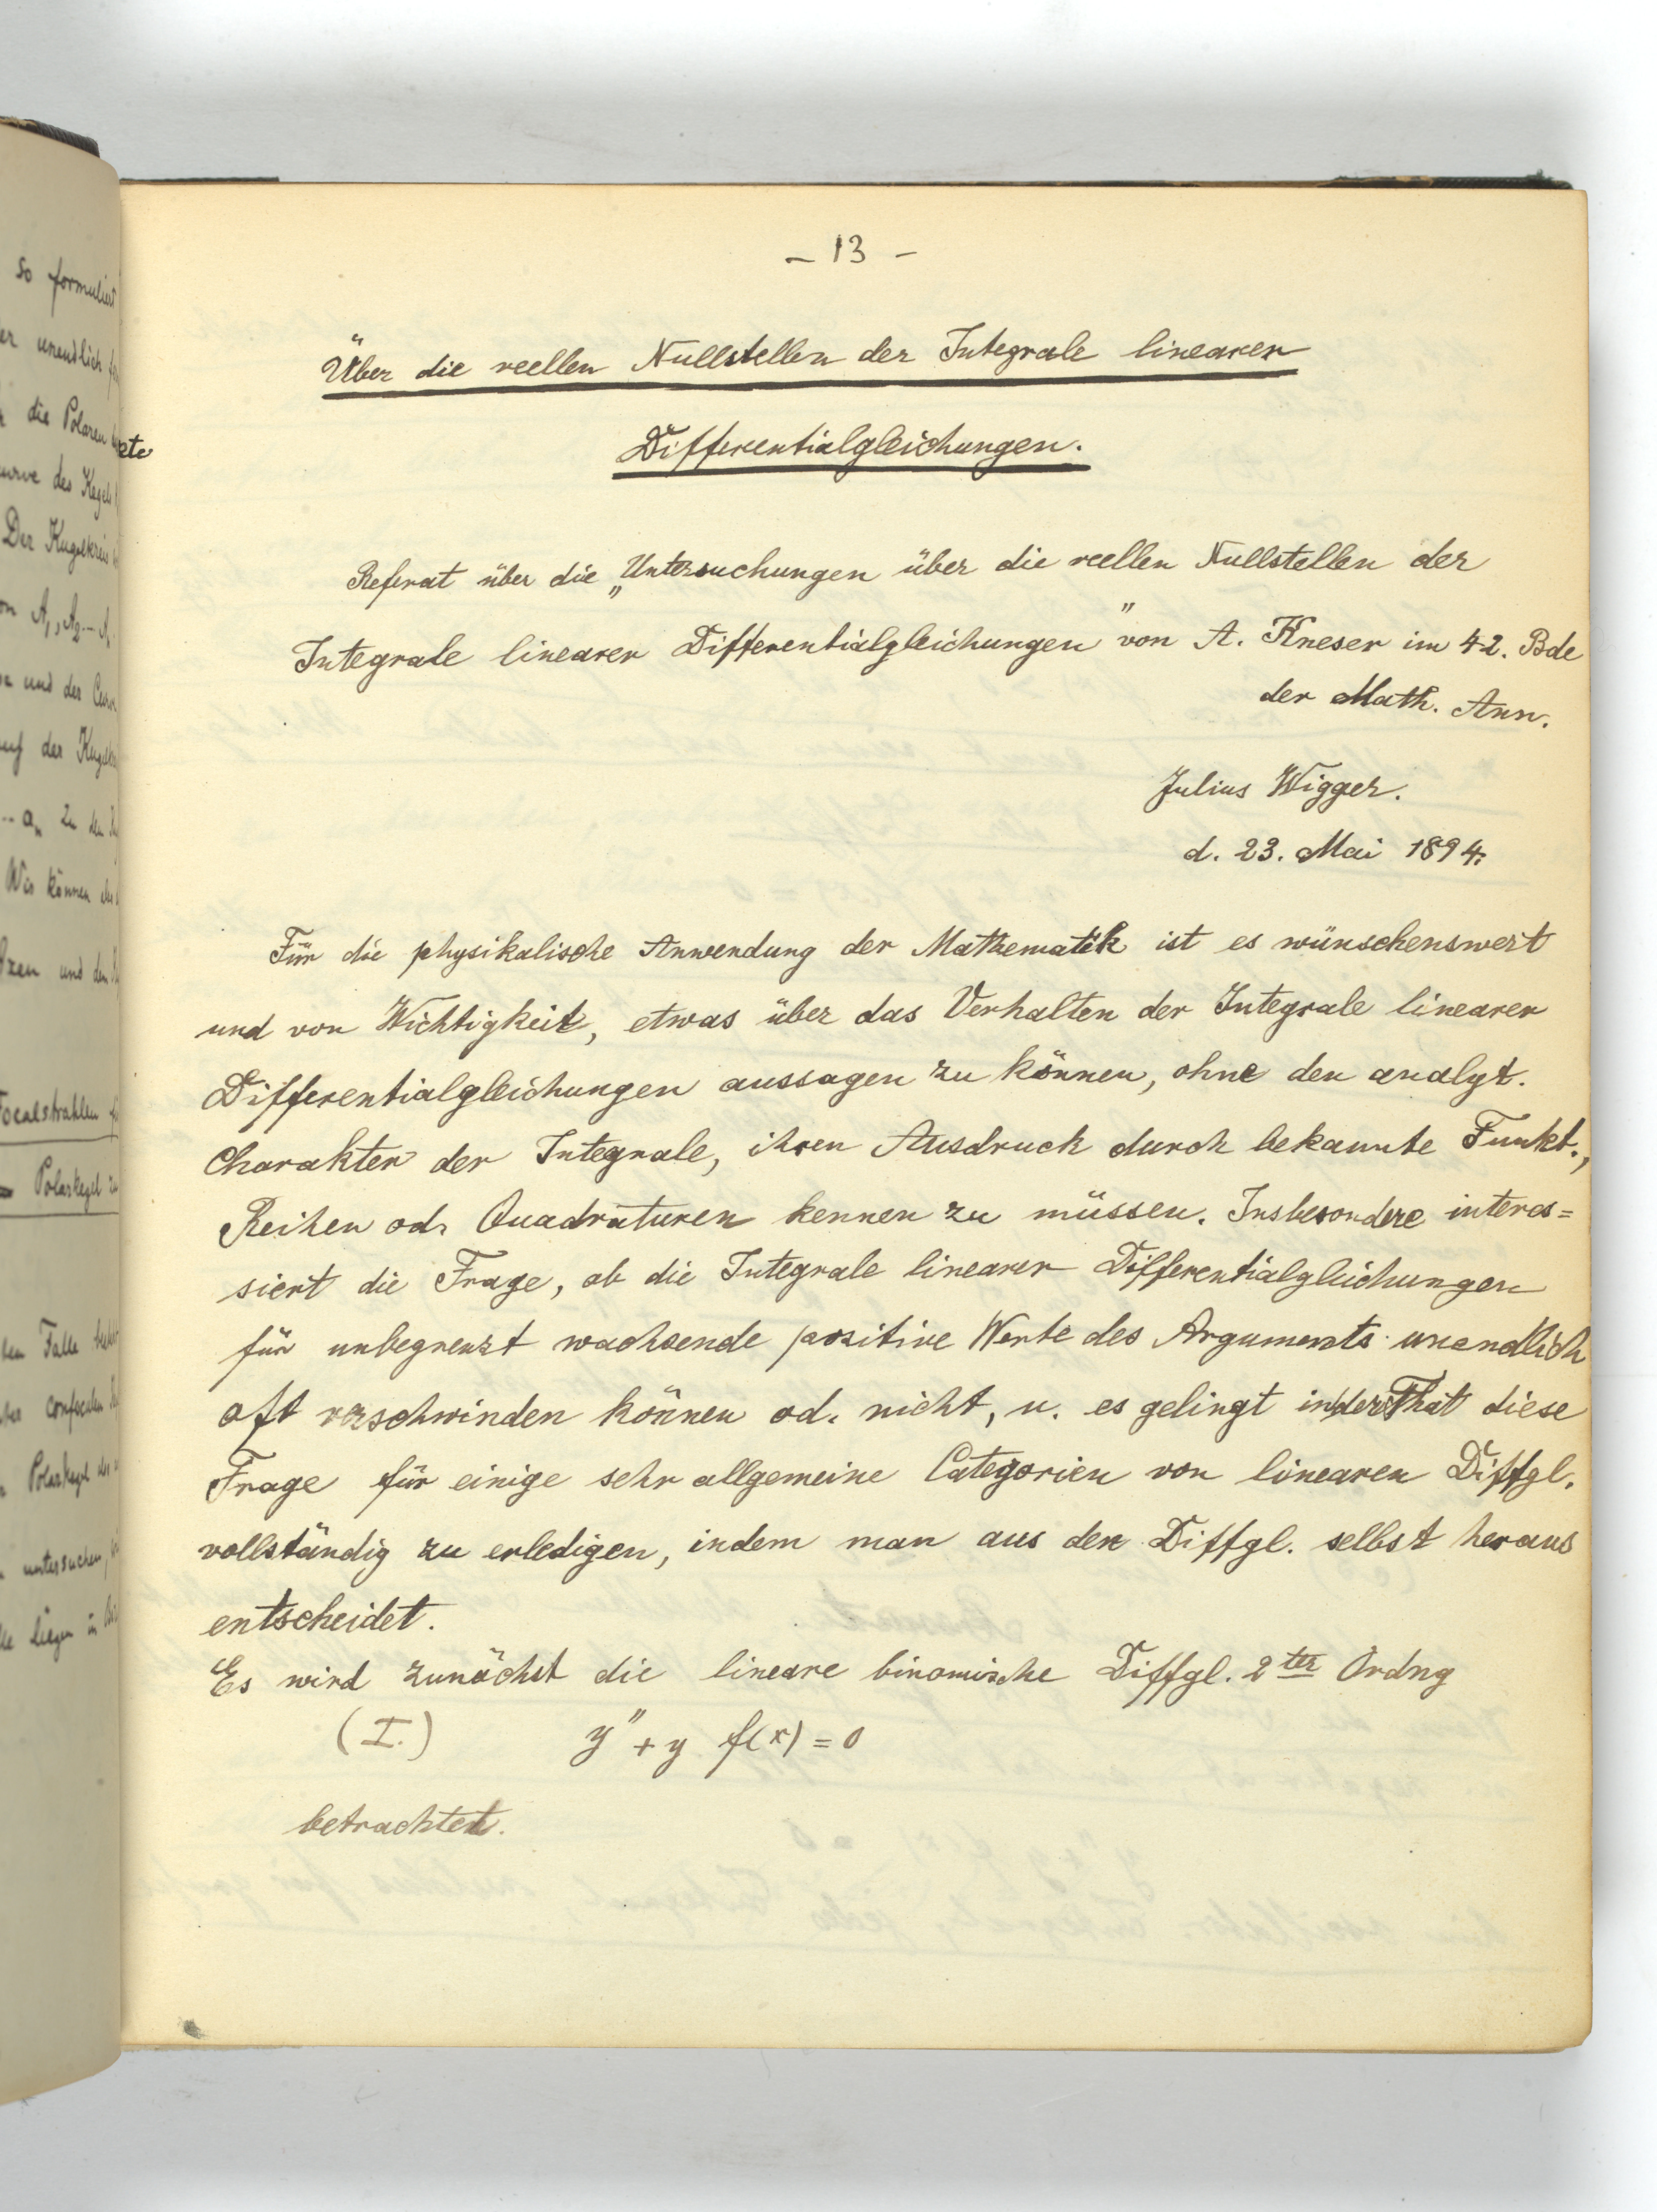 – 13 –
Über die reellen Nullstellen der Integrale linearer
Differentialgleichungen.
Referat über die „Untersuchungen über die reellen Nullstellen der
Integrale linearer Differentialgleichungen" von A. Kneser im 42. Bde
der Math. Ann.
Julius Wigger.
d. 23. Mai 1894.
Für die physikalische Anwendung der Mathematik ist es wünschenswert
und von Wichtigkeit, etwas über das Verhalten der Integrale linearer
Differentialgleichungen aussagen zu können, ohne den analyt.
Charakter der Integrale, ihren Ausdruck durch bekannte Funkt.,
Reihen od. Quadraturen kennen zu müssen. Insbesondere interes=
siert die Frage, ob die Integrale linearer Differentialgleichungen
für unbegrenzt wachsende positive Werte des Arguments unendlich
oft verschwinden können od. nicht, u. es gelingt in der That diese
Frage für einige sehr allgemeine Categorien von linearen Diffgl.
vollständig zu erledigen, indem man aus der Diffgl. selbst heraus
entscheidet.
Es wird zunächst die lineare binomische Diffgl. 2ter Ordng
(I.) y" + y f(x) = 0
betrachtet.
so formuliert
unendlich
die Polaren
des Kegels
Der Kugelkreis
A1, A2 –
und der
auf der
Wir können
und den
Focalstrahlen
Polarkegel
Falle
confocalen
Polarkegel
untersuchen,
liegen in